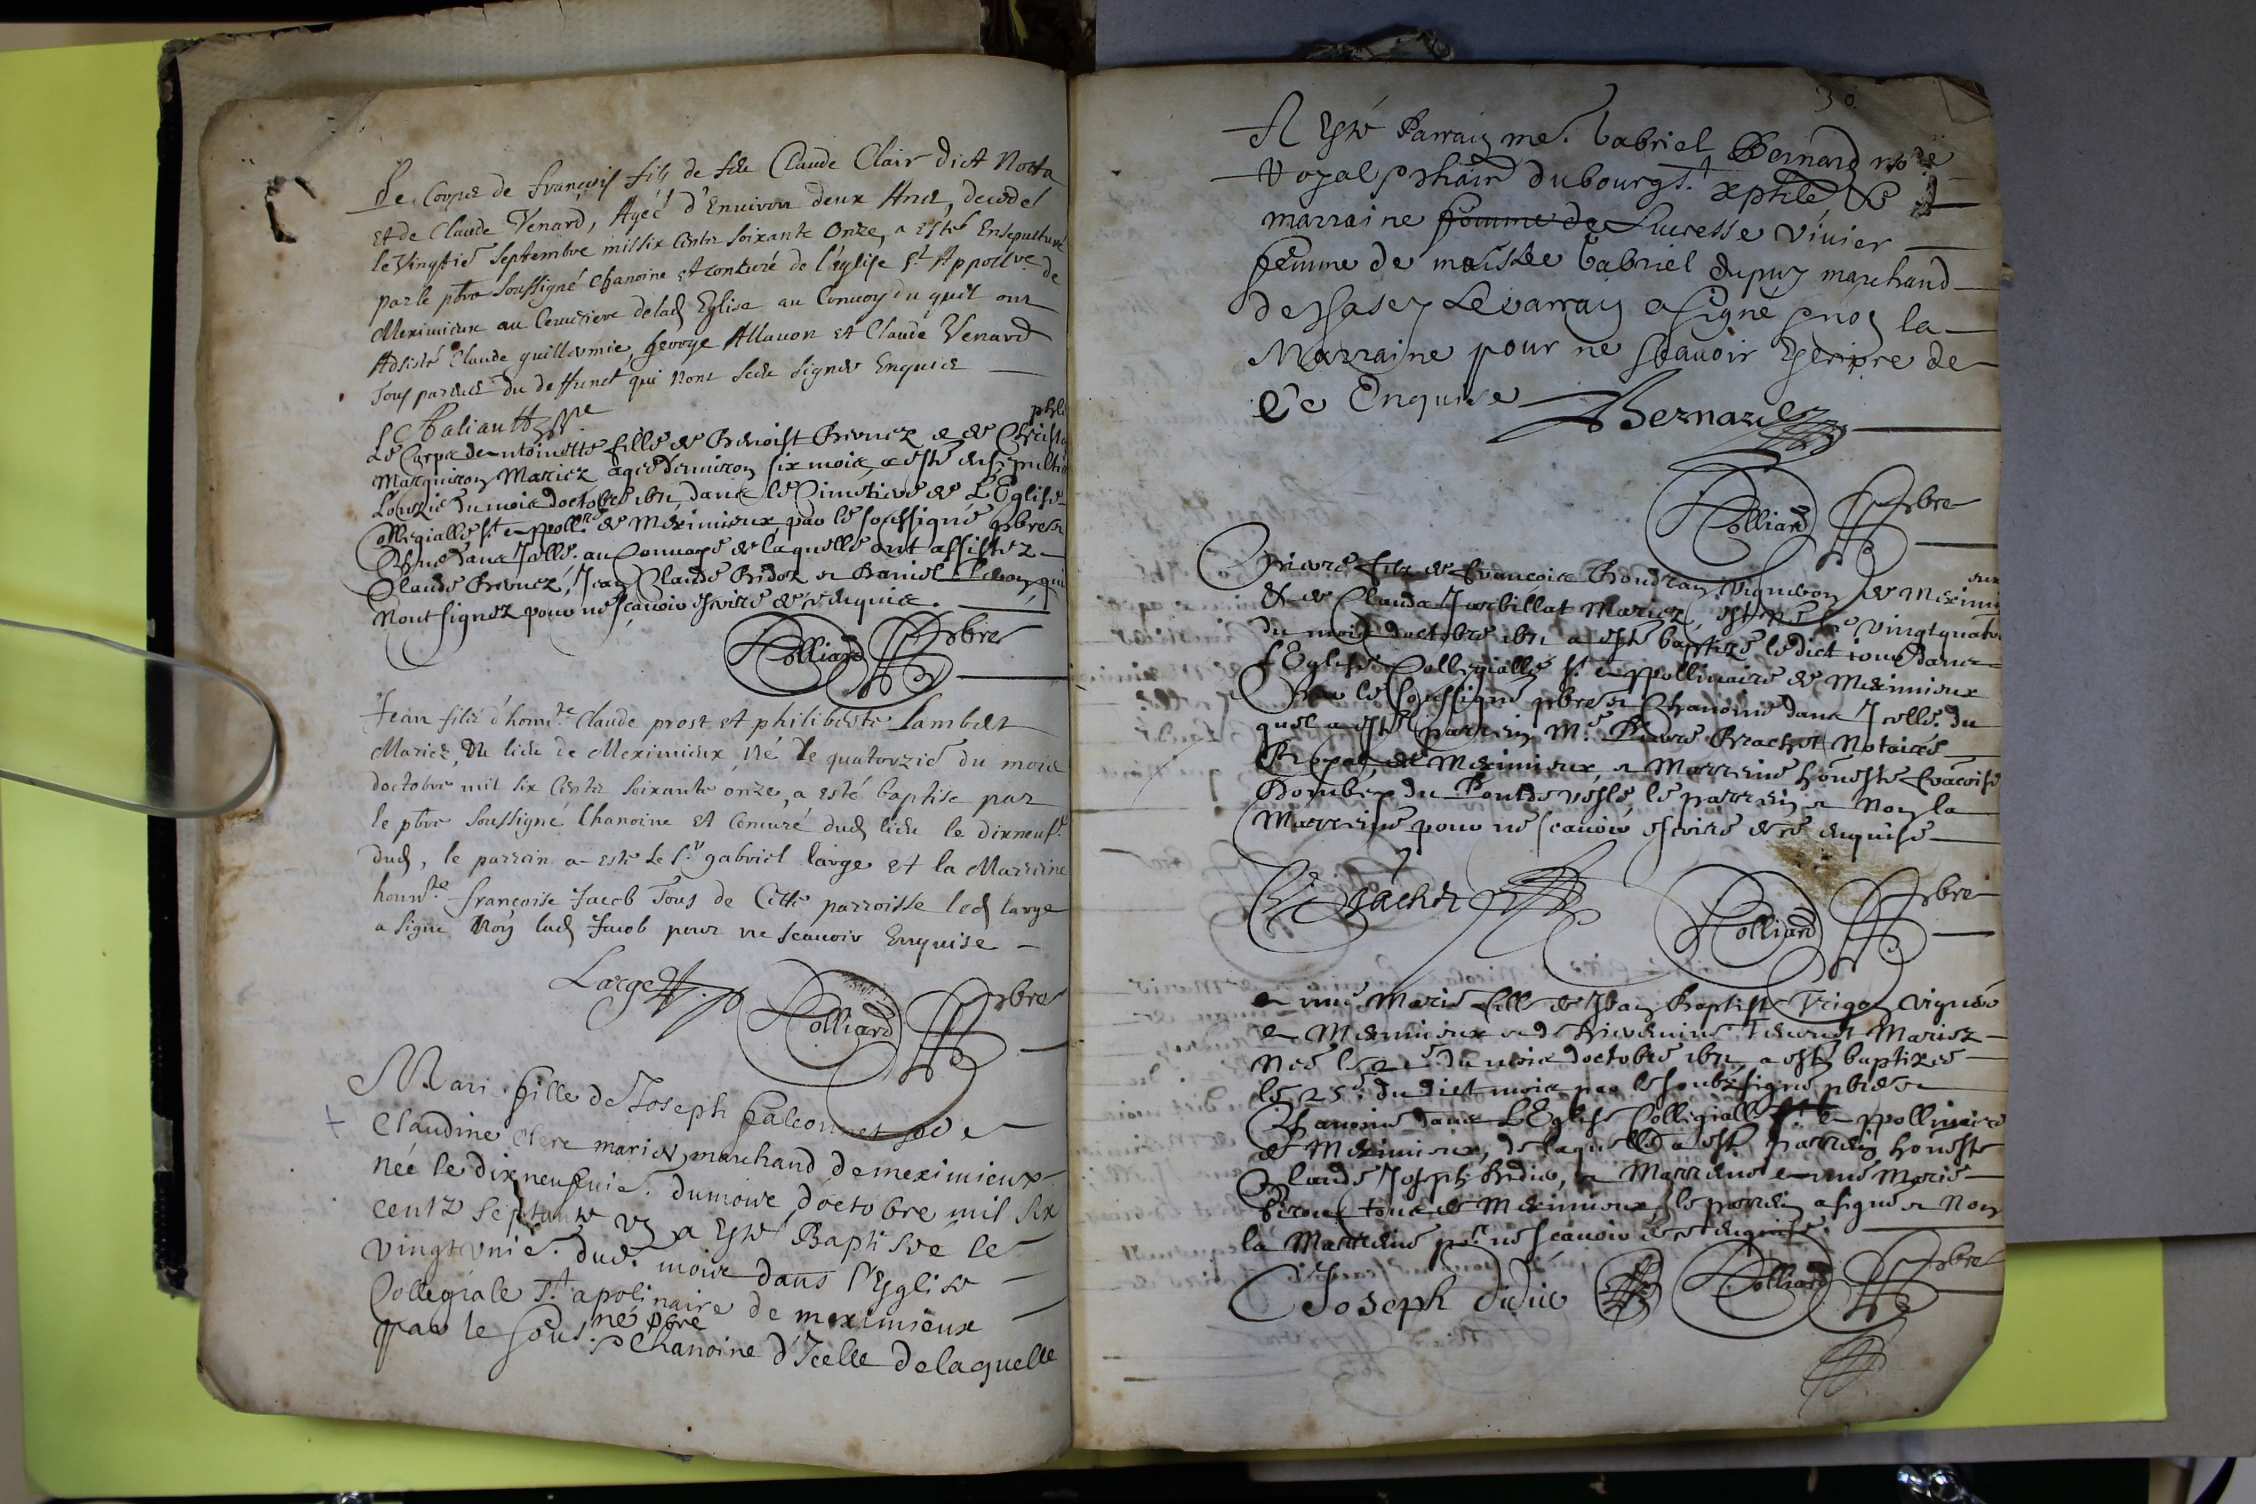 Le Corps de françois fils de feu Claude Clair dict Notta
Et de Claude Venard, Agéé d'Environ deux Ans, decedé
le Vingtie Septembre mil six Cents soixante Onze, a Esté Ensepulturé
par le pbre soussigné Chanoine et conturé de l'eglise St Appolre de
Meximieux au Cemetiere delad Eglise au Convoy du quel ont
Adsisté Claude guillermie, george Allavon Et Claude Venard
Tous parens du deffunct qui nont sceu signer Enquis
phle
Le Corps dentoinette fille de Benoist Brevuez & de Christo
Marguiron Mariez agee denviron six mois, a esté ensepultu
Lonzie du mois doctobre 1671, dans le Cimetiere de L'Eglise
Collegialle St Appollre de Meximieux par le soussigné pbre &
Chne dans Icelle. au Convoye de laquelle ont assistez
Claude Brevuez, Jean Claude Bidoz & Daniel qui
Nont signez pour ne sçavoir escrire de ce enquis.
Rolliard pbre
Jean filz d'honnte Claude prost et philiberte Lambert
Mariez, du lieu de Meximieux, Né le quatorzie du mois
doctobre mil six Cents soixante onze, a esté baptise par
le pbre soussigné Chanoine Et Conturé dud lieu le dixneufe
dud, le parrain a esté Le Sr gabriel large et la Marrine
honnte françoise Jacob Tous de Cette parroisse led large
a signe Non lad Jacob pour ne scavoir Enquise
Large Rolliard pbre
Mari fille de Joseph falconnet & de
Claudine Clerc mariez marchand de meximieux
néé le dixneufvie. du mois d'octobre mil six
centz septante un a esté Baptisée le
vingtunie. dud. mois dans l'Eglise
Collegiale St apolinaire de meximieux
par le sousné pbre
Chanoine d'Icelle de laquelle
30
A Esté Parrain me. Gabriel Bernard nore
Royal & du bourg St xphle &
marraine femme de Lucresse vivier
femme de maistre Gabriel dupuy marchand
de Le parrain a signé & non la
Marraine pour ne sçavoir Escripre de
Ce Enquise Bernard
Rolliard pbre
Pierre filz de françois Bondran Vigneron de Meximi
eux
& de Clauda Jarbillat Mariez, est né le vingtquatre
du mois doctobre 1671 a esté baptizé le dict jour dans
l'Eglise Collegialle St Appollinaire de Meximieux
Par le soussigné pbre & Chanoine dans Icelle. du
quel a esté parrein Me Pierre Brachet Notaire
Royal de Meximieux, & Marreine honeste frãcoise
Bombez du Pontdevesle, le parrein & Non la
Marreine pour ne sçavoir escrire de ce enquise
Brachet Rolliard pbre
Anne Marie fille de Jean Baptiste Trigon vignero
a Meximieux & de Mariez
Née le 21e du mois doctobre 1671, a esté baptizée
le 25e. du dict mois par le soubzsigné pbre &
Chanoine dans L'Eglise Collegialle St Appollinaire
de Meximieux, de laquelle a esté parrein honeste
Claude Joseph Bidue, & Marreine Anne Marie
tous de Meximieux, le parrein a signé & Non
la Marreine pr ne sçavoir de ce enquise.
Joseph Rolliard pbre